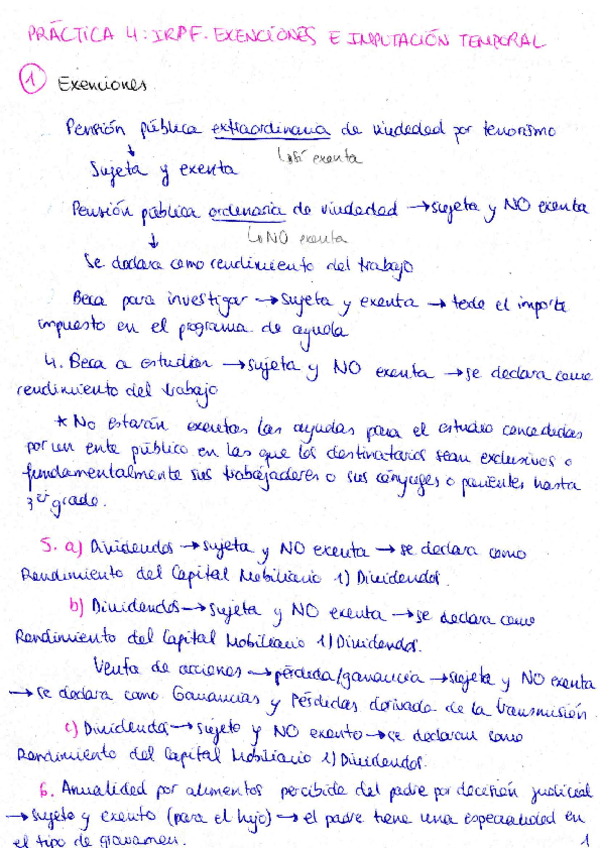 PRÁCTICA 4: IRPF. EXENCIONES E IMPUTACIÓN TEMPORAL
1 Exenciones
Pensión pública extraordinaria de viudedad por terrorismo
↳ sí exenta
↓
Sujeta y exenta
Pensión pública ordinaria de viudedad → sujeta y NO exenta
↳ NO exenta
↓
Se declara como rendimiento del trabajo
Beca para investigar → sujeta y exenta → todo el importe
impuesto en el programa de ayuda
4. Beca a estudiar → sujeta y NO exenta → se declara como
rendimiento del trabajo
* No estarán exentas las ayudas para el estudio concedidas
por un ente público en las que los destinatarios sean exclusivos o
fundamentalmente sus trabajadores o sus cónyuges o parientes hasta
3er grado.
5. a) Dividendos → sujeta y NO exenta → se declara como
Rendimiento del Capital Mobiliario 1) Dividendos.
b) Dividendos → sujeta y NO exenta → se declara como
Rendimiento del Capital Mobiliario 1) Dividendos.
Venta de acciones → pérdida/ganancia → sujeta y NO exenta
→ se declara como Ganancias y Pérdidas derivado de la transmisión
c) Dividendos → sujeto y NO exento → se declaran como
Rendimiento del Capital Mobiliario 1) Dividendos.
6. Anualidad por alimentos percibida del padre por decisión judicial
→ sujeto y exento (para el hijo) → el padre tiene una especialidad en
el tipo de gravamen.
1